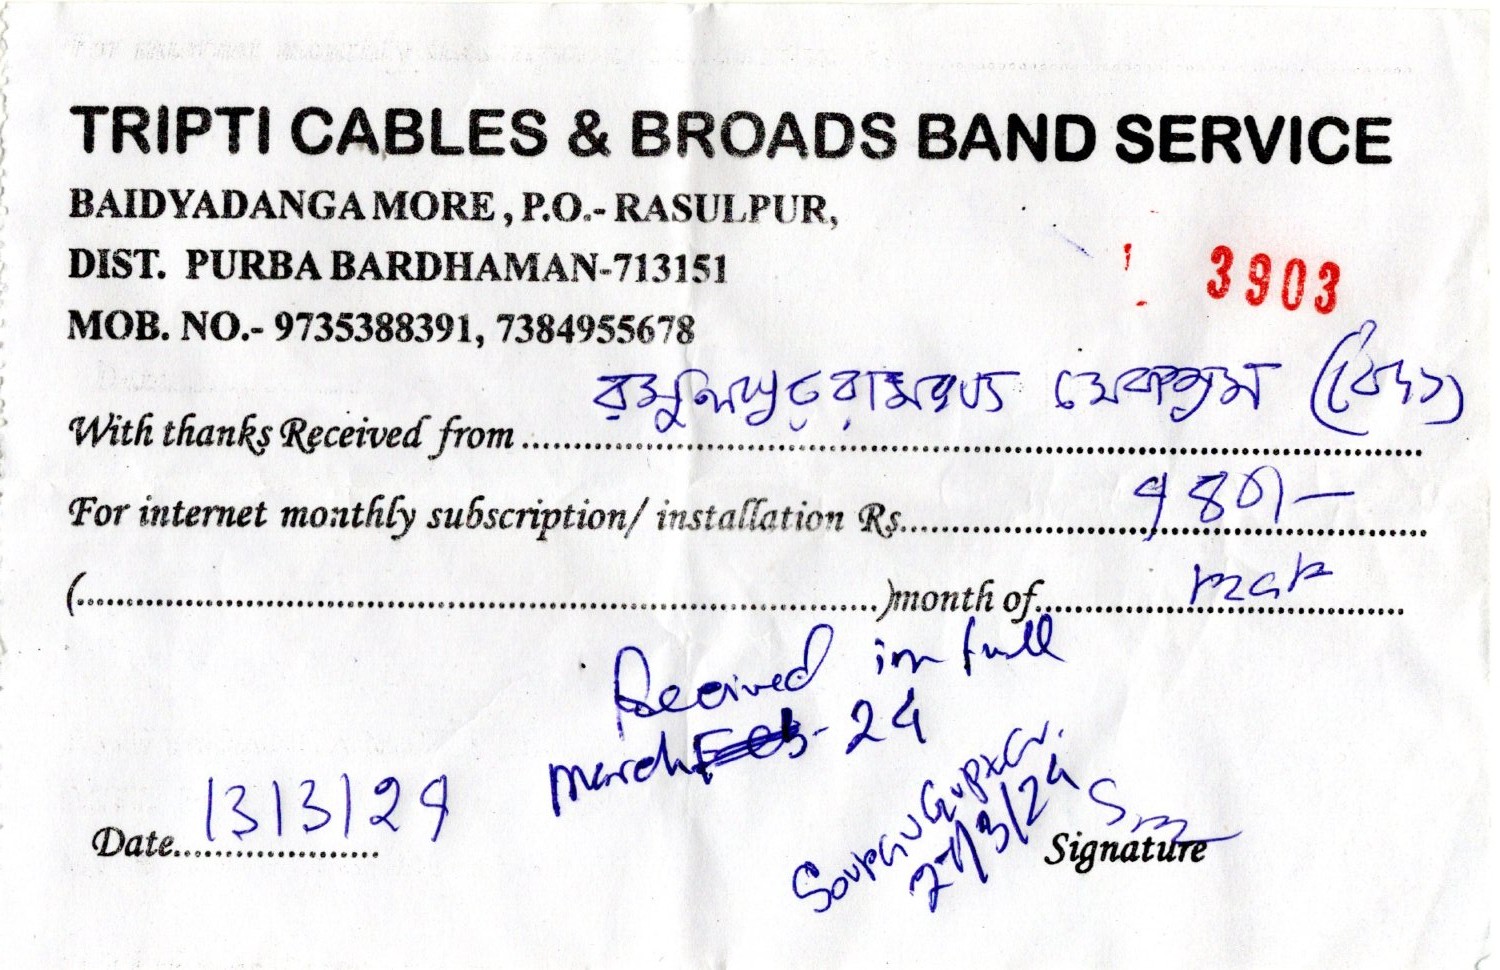 TRIPTI CABLES & BROADS BAND SERVICE
BAIDYADANGA MORE, P.O.- RASULPUR,
DIST. PURBA BARDHAMAN-713151
3903
MOB. NO.- 9735388391, 7384955678
With thanks Received from রসুলপুর রামকৃষ্ণ সেবাশ্রম
For internet monthly subscription/ installation Rs.
( )month of mar
Received in full
March - 24
Date 13/3/24
27/3/24
Signature